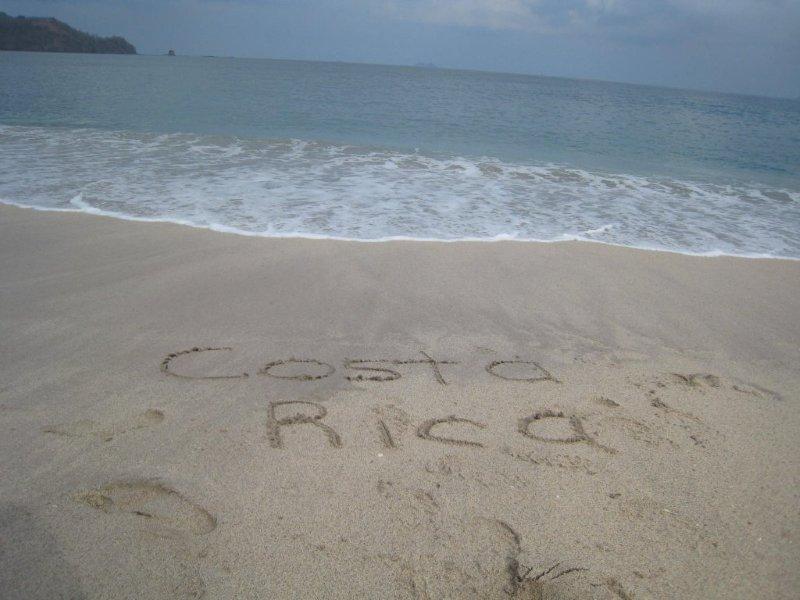 Costa
Rica